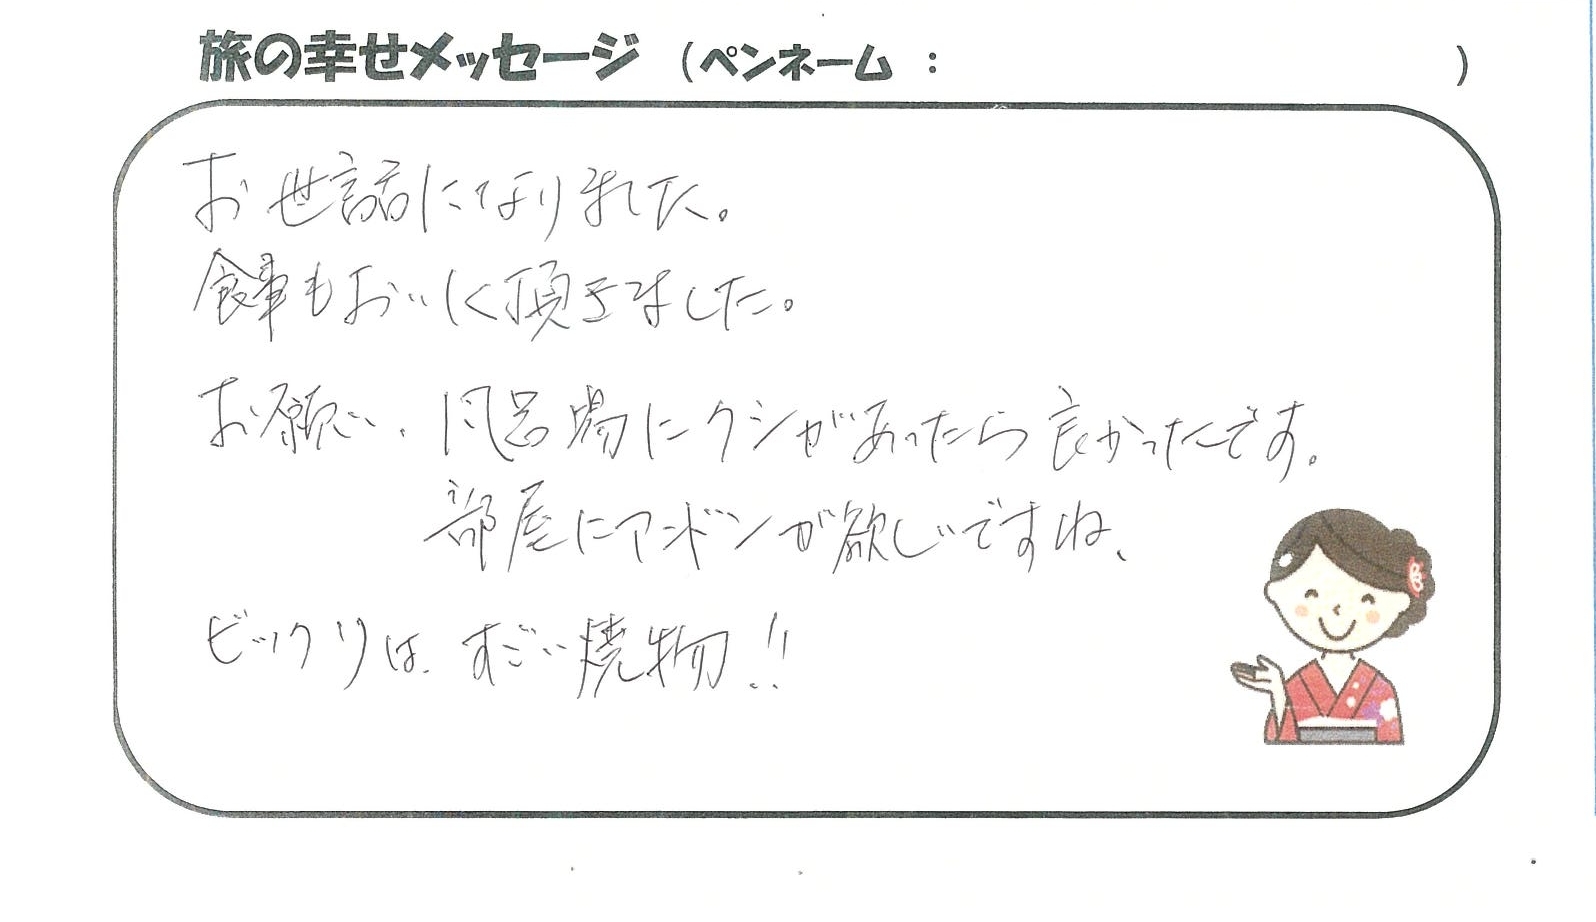 旅の幸せメッセージ (ペンネーム : )
お世話になりました。
食事もおいしく頂きました。
お願い、風呂場にクシがあったら良かったです。
部屋にアンドンが欲しいですね、
ビックリは、すごい焼物!!